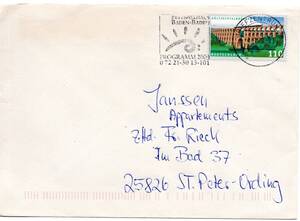 BADEN-BADEN
PROGRAMM 2001
0 72 21-30 13-101
110
Janssen
Appartements
z.Hd. Fr. Rieck
Im Bad 37
25826 St. Peter-Ording